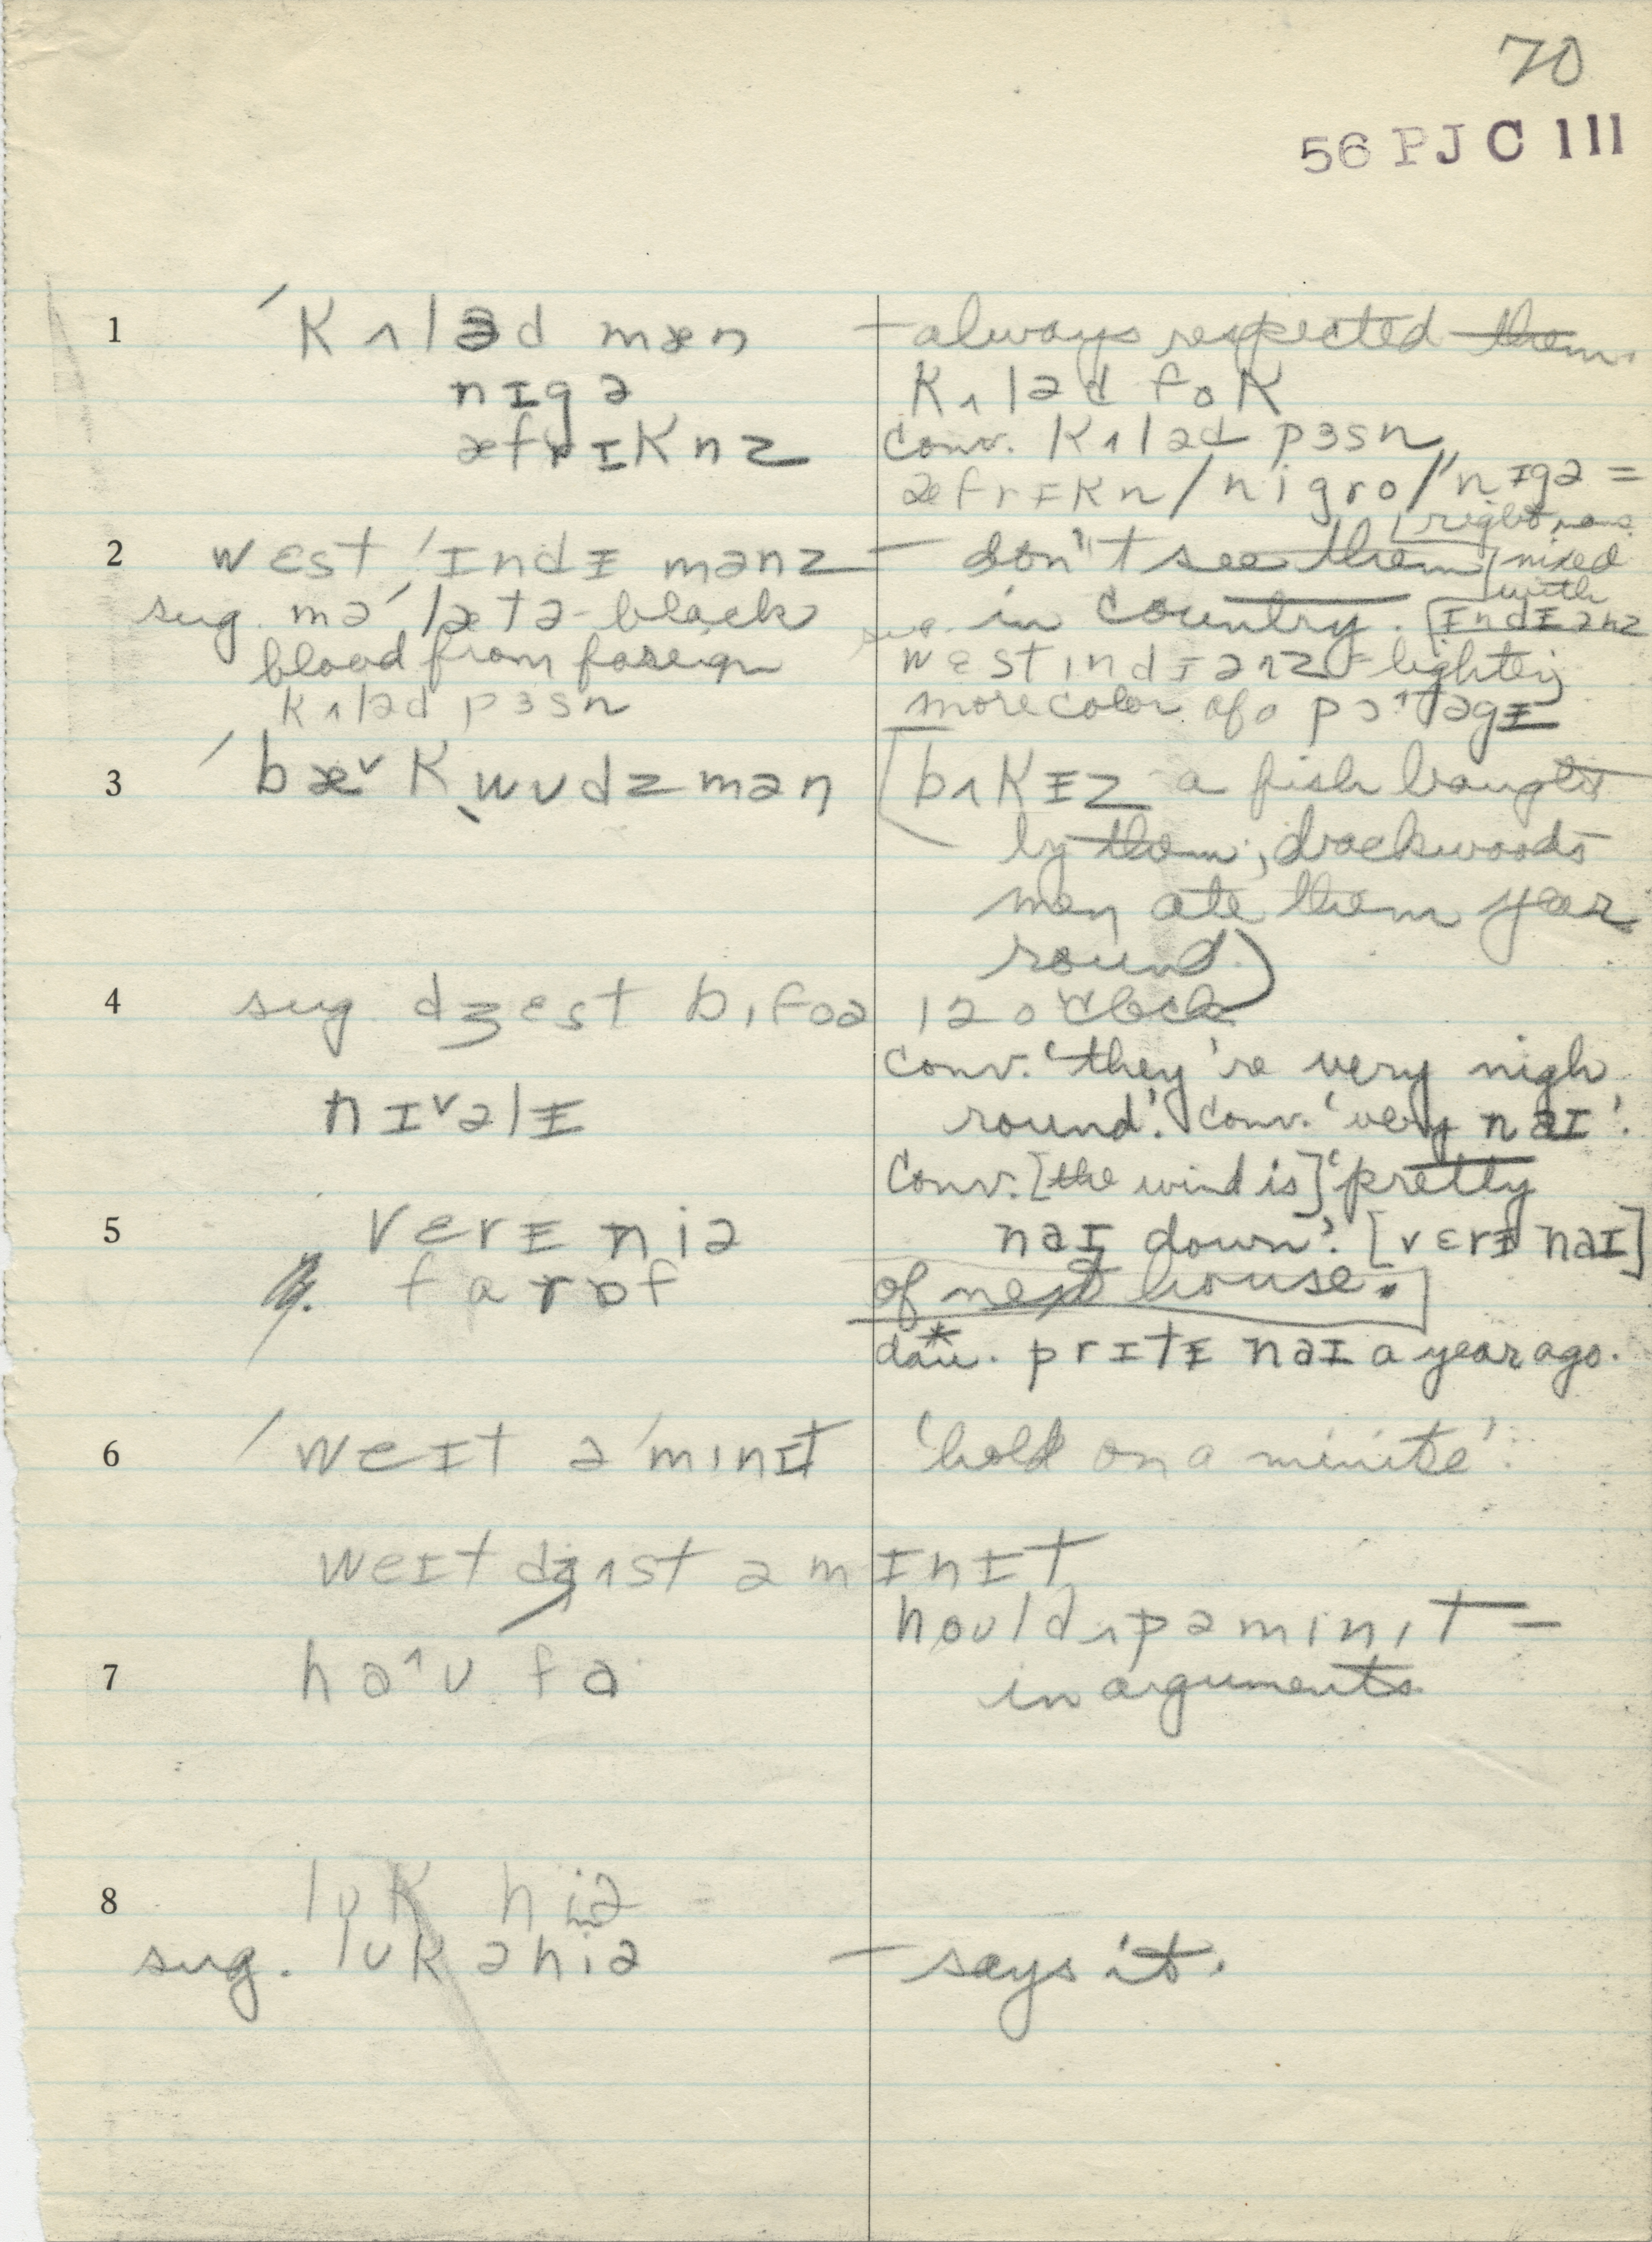 70
56 PJC III
1 ˈkʌləd mæn — always respected them.
nɪgə kʌləd fok
æfrɪknz conv. kʌləd pɜsn
æfrɪkn / nigro / "nɪgə =
right name
2 west ˈɪndɪ mənz — don't see them mixed
with
sug. məˈlætə - black in country. ɪndɪənz
blood from foreign west ɪndɪənz = lighter,
kʌləd pɜsn more color of a pɔ^təgɪ
3 ˈbæ˅k ˌwʊdzmən [bʌkɪz a fish bought
by them; backwoods
men ate them year
round.)
4 sug dʒest bɪfoə 12 o'clock
conv. 'they're very nigh
nɪ˅əlɪ round'. conv. 'very naɪ'.
conv. [the wind is] 'pretty
5 verɪ niə naɪ down'. [verɪ naɪ]
farɒf of next house.
dau.* prɪtɪ naɪ a year ago.
6 ˈweɪt əˈmɪnɪt 'hold on a minute'.
weɪt dʒʌst ə mɪnɪt
hould ʌp ə mɪnɪt =
7 ha^ʊ fa in arguments
8 lʊk hiə
sug. lʊk ə hiə — says it.